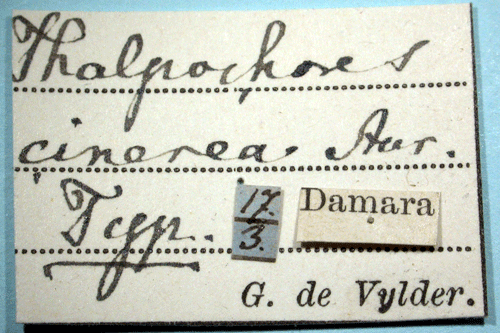 Thalpochares
cinerea Aur.
Typ.
17.
3.
Damara
G. de Vylder.